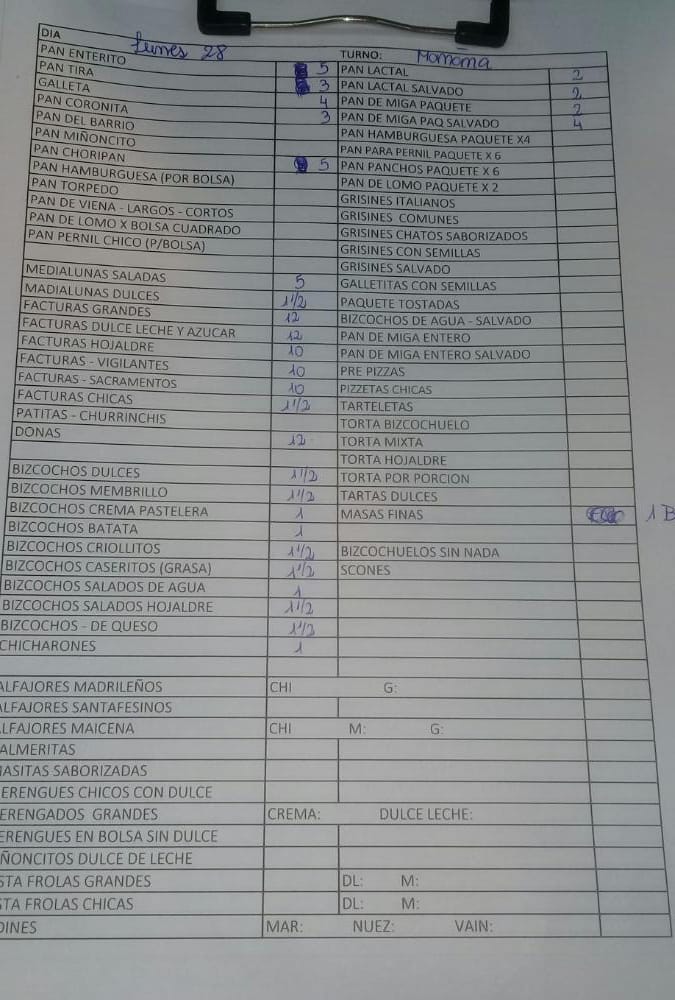 DIA lunes 28 TURNO: Mamama
PAN ENTERITO 5 PAN LACTAL 2
PAN TIRA 3 PAN LACTAL SALVADO 2
GALLETA 4 PAN DE MIGA PAQUETE 2
PAN CORONITA 3 PAN DE MIGA PAQ SALVADO 4
PAN DEL BARRIO PAN HAMBURGUESA PAQUETE X4
PAN MIÑONCITO PAN PARA PERNIL PAQUETE X 6
PAN CHORIPAN 5 PAN PANCHOS PAQUETE X 6
PAN HAMBURGUESA (POR BOLSA) PAN DE LOMO PAQUETE X 2
PAN TORPEDO GRISINES ITALIANOS
PAN DE VIENA - LARGOS - CORTOS GRISINES COMUNES
PAN DE LOMO X BOLSA CUADRADO GRISINES CHATOS SABORIZADOS
PAN PERNIL CHICO (P/BOLSA) GRISINES CON SEMILLAS
GRISINES SALVADO
MEDIALUNAS SALADAS 5 GALLETITAS CON SEMILLAS
MADIALUNAS DULCES 1 1/2 PAQUETE TOSTADAS
FACTURAS GRANDES 12 BIZCOCHOS DE AGUA - SALVADO
FACTURAS DULCE LECHE Y AZUCAR 12 PAN DE MIGA ENTERO
FACTURAS HOJALDRE 10 PAN DE MIGA ENTERO SALVADO
FACTURAS - VIGILANTES 10 PRE PIZZAS
FACTURAS - SACRAMENTOS 10 PIZZETAS CHICAS
FACTURAS CHICAS 1 1/2 TARTELETAS
PATITAS - CHURRINCHIS TORTA BIZCOCHUELO
DONAS 12 TORTA MIXTA
TORTA HOJALDRE
BIZCOCHOS DULCES 1 1/2 TORTA POR PORCION
BIZCOCHOS MEMBRILLO 1 1/2 TARTAS DULCES
BIZCOCHOS CREMA PASTELERA 1 MASAS FINAS 1 B
BIZCOCHOS BATATA 1
BIZCOCHOS CRIOLLITOS 1 1/2 BIZCOCHUELOS SIN NADA
BIZCOCHOS CASERITOS (GRASA) 1 1/2 SCONES
BIZCOCHOS SALADOS DE AGUA 1
BIZCOCHOS SALADOS HOJALDRE 1 1/2
BIZCOCHOS - DE QUESO 1 1/2
CHICHARONES 1
ALFAJORES MADRILEÑOS CHI G:
ALFAJORES SANTAFESINOS
ALFAJORES MAICENA CHI M: G:
ALMERITAS
MASITAS SABORIZADAS
ERENGUES CHICOS CON DULCE
ERENGADOS GRANDES CREMA: DULCE LECHE:
ERENGUES EN BOLSA SIN DULCE
ÑONCITOS DULCE DE LECHE
STA FROLAS GRANDES DL: M:
STA FROLAS CHICAS DL: M:
DINES MAR: NUEZ: VAIN: